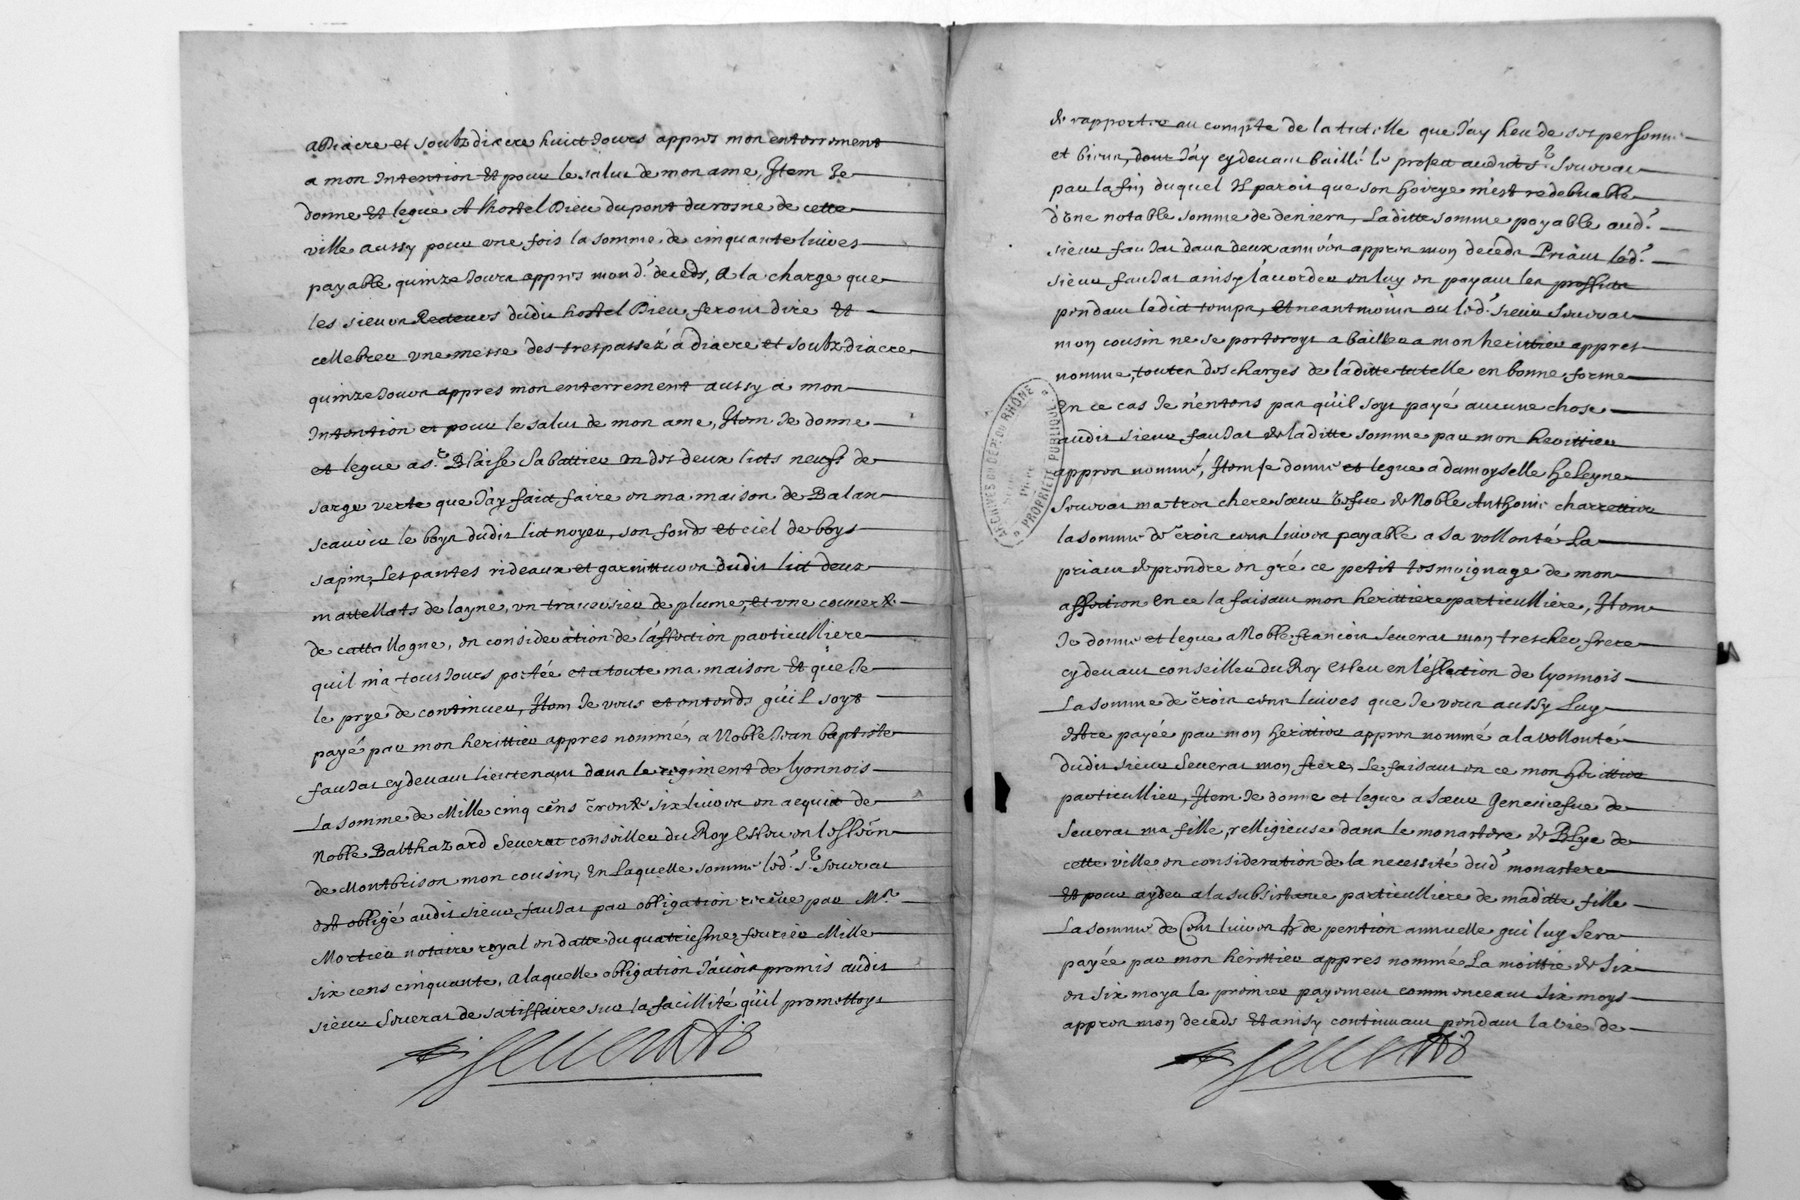 a diacre et soubzdiacre huict Jours appres mon enterrement
a mon Intention Et pour le salut de mon ame, Item Je
donne Et legue A lhostel Dieu du pont du rosne de cette
ville aussy pour une fois la somme de cinquante livres
payable quinze Jours appres mond.t deceds, A la charge que
les sieurs Recteurs dudit hostel Dieu feront dire Et
cellebrer une messe des trespassez á diacre et soubzdiacre
quinze Jours appres mon enterrement aussy a mon
Intention et pour le salut de mon ame, Item Je donne
et legue a s.r Blaise Sabattier un des deux licts neufs de
sarge verte que J'ay faict faire en ma maison de Balan
scavoir le boys dudit lict noyer, son fonds et ciel de boys
sapin, Les pantes rideaux et garnittures dudit lict deux
mattellats de layne, un traversier de plume, et une couverte
de cattallogne, en consideration de l'affection particulliere
quil m'a tousJours portée et a toute ma maison Et que Je
le prye de continuer, Item Je veux et entends qu'il soyt
payé par mon herittier appres nommé, a Noble Jean baptiste
faudat cydevant lieutenant dans le regiment de lyonnois
La somme de Mille cinq cens trente six livres en acquit de
Noble Balthazard Severat conseiller du Roy Esleu en leslection
de Montbrison mon cousin, En Laquelle somme led.t s.r Severat
est obligé audit sieur faudat par obligation receue par M.e
Mortier notaire royal en datte du quatriesme fevrier Mille
six cens cinquante, a laquelle obligation J'avois promis audit
sieur Severat de satisfaire sur la facillité qu'il promettoyt
Severat
de rapporter au compte de la tutelle que J'ay heu de ses personne
et biens, dont J'ay cydevant baillé le project audict s.r Severat
par la fin duquel Il paroit que son hoirye m'est redebvable
d'Une notable somme de deniers, Laditte somme payable aud.t
sieur faudat dans deux années appres mon deceds Priant led.t
sieur faudat ainsy l'accorder en luy en payant les proffits
pendant ledict temps, Et neantmoins ou led.t sieur Severat
mon cousin ne se porteroyt a bailler a mon herittier appres
nomme, toutes descharges de laditte tutelle en bonne forme
En ce cas Je n'entens pas qu'il soyt payé aucune chose
audit sieur faudat de laditte somme par mon herittier
appres nommé, Item Je donne et legue a damoyselle Heleyne
Severat ma tres chere sœur vefve de Noble Anthoine charrettier
la somme de trois cens livres payable a sa vollonté La
priant de prendre en gré ce petit tesmoignage de mon
affection En ce la faisant mon herittiere particulliere, Item
Je donne et legue a Noble francois Severat mon trescher frere
cydevant conseiller du Roy Esleu en l'eslection de lyonnois
La somme de trois cens livres que Je veux aussy Luy
estre payée par mon herittier appres nommé a la vollonté
dudit sieur Severat mon frere, Le faisant en ce mon herittier
particullier, Item Je donne et legue a sœur Geneviesve de
Severat ma fille, relligieuse dans le monastere de Blye de
cette ville en consideration de la necessité dud.t monastere
Et pour ayder a la subsistance particulliere de maditte fille
La somme de Cent livres de pention annuelle qui luy sera
payée par mon herittier appres nommé La moittie de six
en six moys le premier payement commenceant six moys
appres mon deceds Et ainsy continuant pendant la vie de
Severat
ARCHIVES DU DEPT DU RHÔNE
PROPRIÉTÉ PUBLIQUE